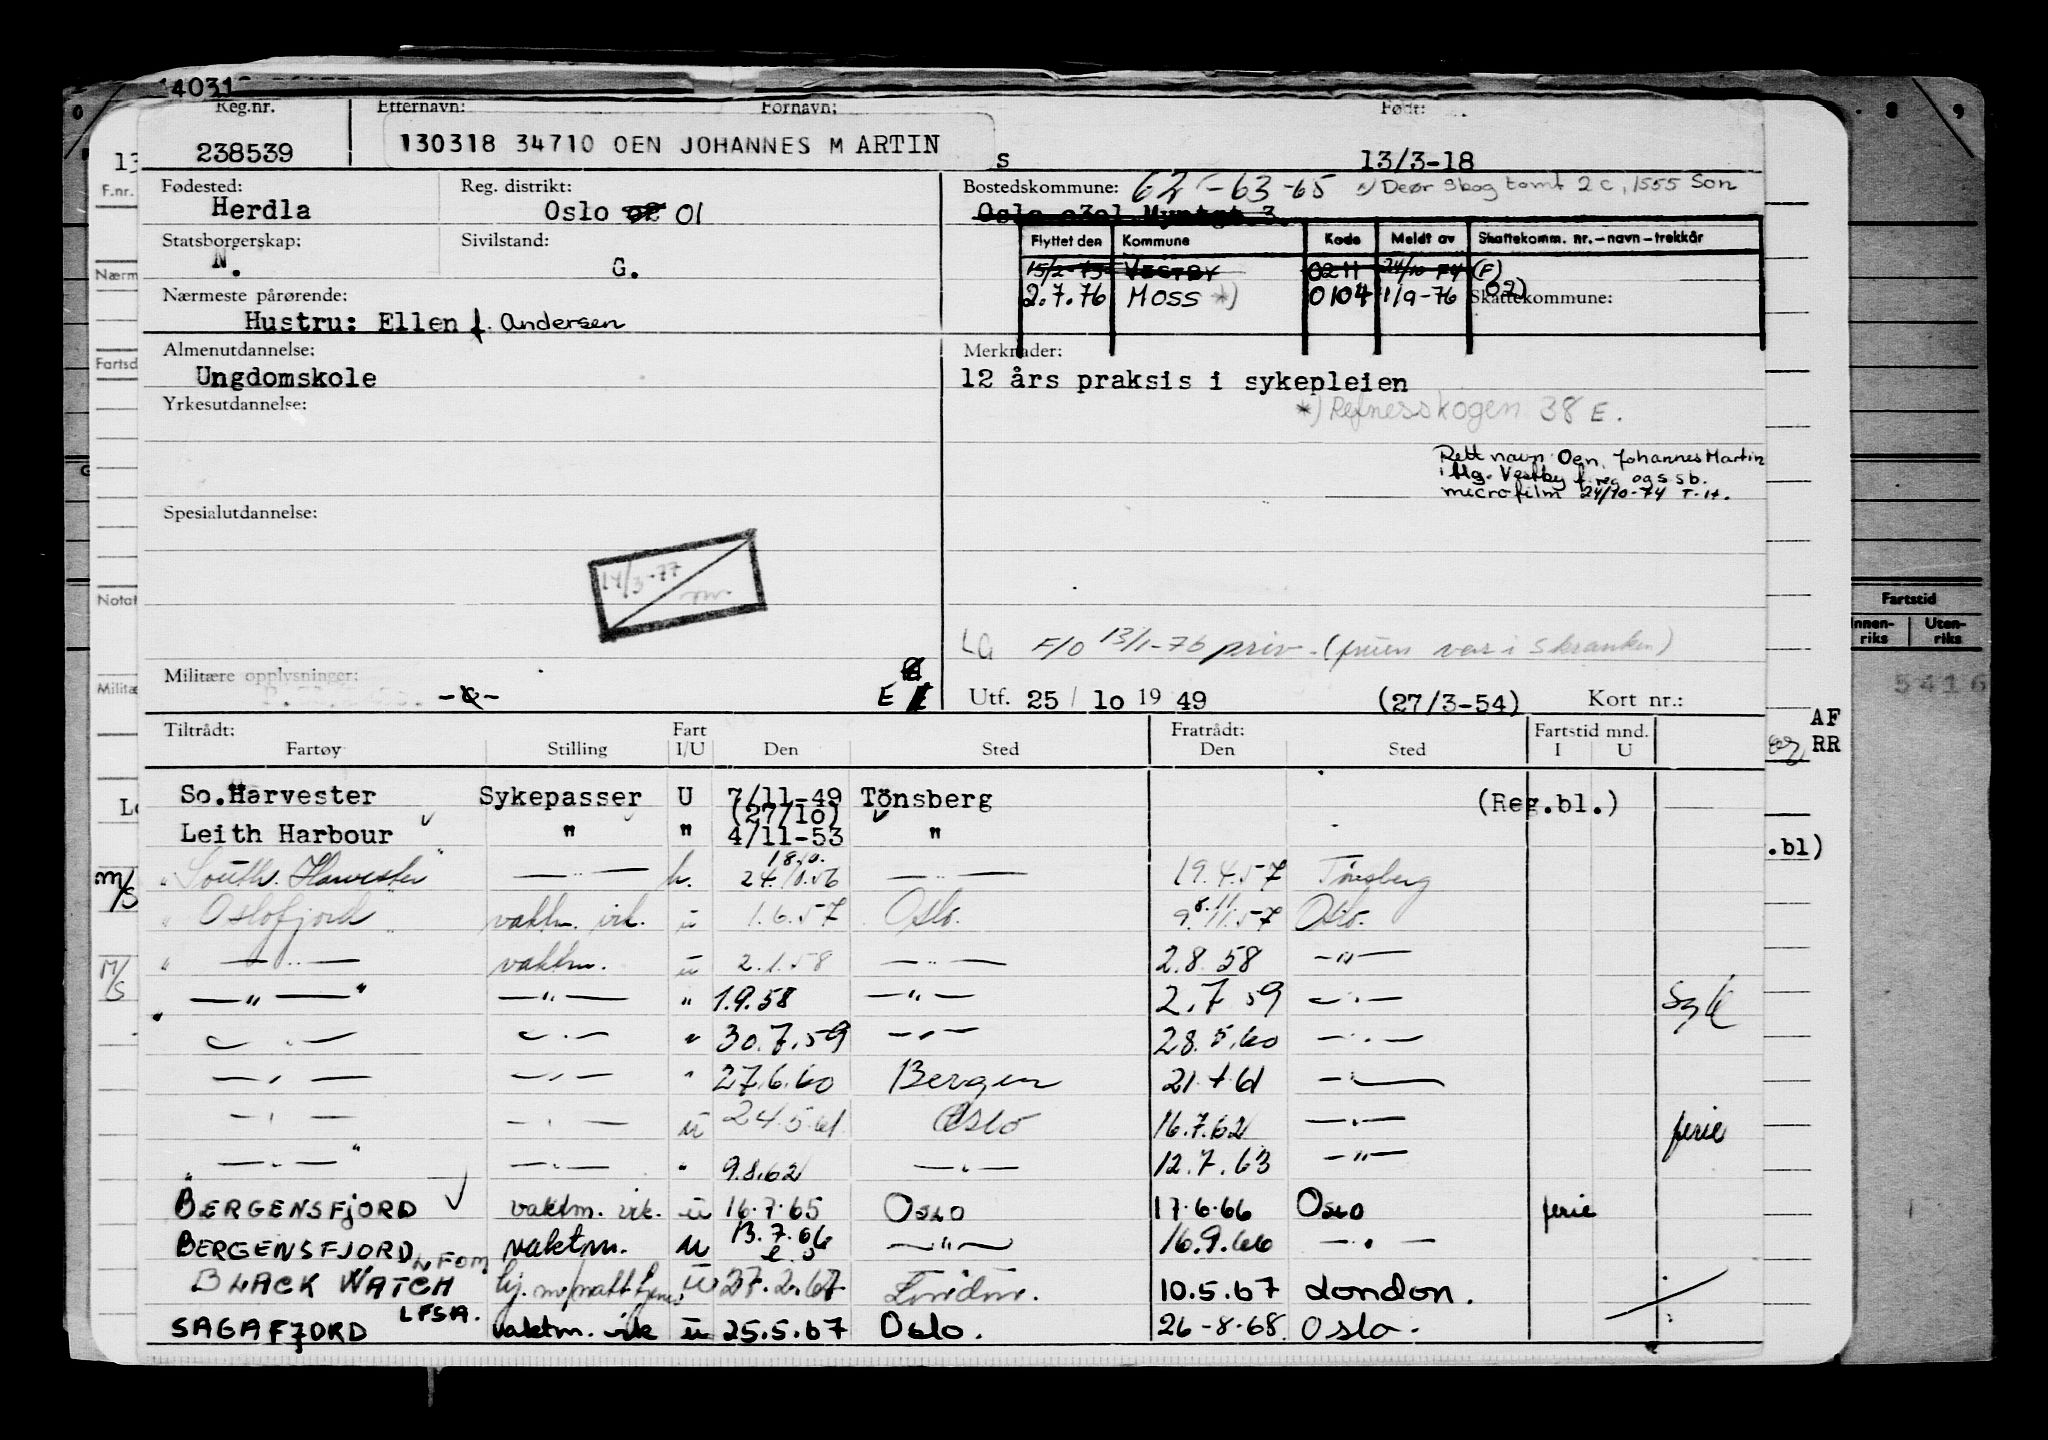 14031
Reg.nr. Etternavn: Fornavn: Født:
238539 130318 34710 OEN JOHANNES MARTIN s 13/3-18
Fødested: Reg. distrikt: Bostedskommune: 62-63-65 Deør Skog tomt 2 c, 1555 Son
Herdla Oslo 02 01 Oslo o3ol Myntgt 3.
Statsborgerskap: Sivilstand: Flyttet den Kommune Kode Meldt av Skattekomm. nr.-navn-trekkår
N. G. 15/2-75 VESTBY 0211 24/10 74 (F)
Nærmeste pårørende: 2.7.76 MOSS *) 0104 1/9-76 02) Skattekommune:
Hustru: Ellen f. Andersen
Almenutdannelse: Merknader:
Ungdomskole 12 års praksis i sykepleien
Yrkesutdannelse: *) Refnesskogen 38 E.
Rett navn: Oen, Johannes Martin
i flg. Vestby f.reg og s.sb.
microfilm 24/10-74 T.H.
Spesialutdannelse:
14/3-77
LG F/O 13/1-76 priv. (fruen var i skranken)
Militære opplysninger: E
Utf. 25/10 1949 (27/3-54) Kort nr.:
Tiltrådt: Fart Fratrådt: Fartstid mnd.
Fartøy Stilling I/U Den Sted Den Sted I U
So.Harvester Sykepasser U 7/11-49 Tönsberg (Reg.bl.)
(27/10)
Leith Harbour " " 4/11-53 "
18.10.
South. Harvester —"— u. 24.10.56 —"— 19.4.57 Tønsberg
8.11
Oslofjord vaktm. vik. u 1.6.57 Oslo. 9.11.57 Oslo.
—"— vaktm. u 2.1.58 —"— 2.8.58 —"—
—"— —"— " 1.9.58 —"— 2.7.59 —"— Syk
—"— —"— " 30.7.59 —"— 28.5.60 —"—
—"— —"— " 27.6.60 Bergen 21.4.61 —"—
—"— —"— u 24.5.61 Oslo 16.7.62 —"— ferie
—"— —"— " 9.8.62 —"— 12.7.63 —"—
BERGENSFJORD vaktm. vik. u 16.7.65 Oslo 17.6.66 Oslo ferie
BERGENSFJORD vaktm. u 13.7.66 —"— 16.9.66 —"—
LFOM
BLACK WATCH u 27.2.67 London. 10.5.67 London.
LFSA.
SAGAFJORD vaktm. vik u 25.5.67 Oslo. 26-8-68 Oslo.
F.nr.
Nærm
Fartsd
Notat
Militæ
M/S
M/S
8 9
Fartstid
Innen-riks Uten-riks
5416
AF
RR
.bl)